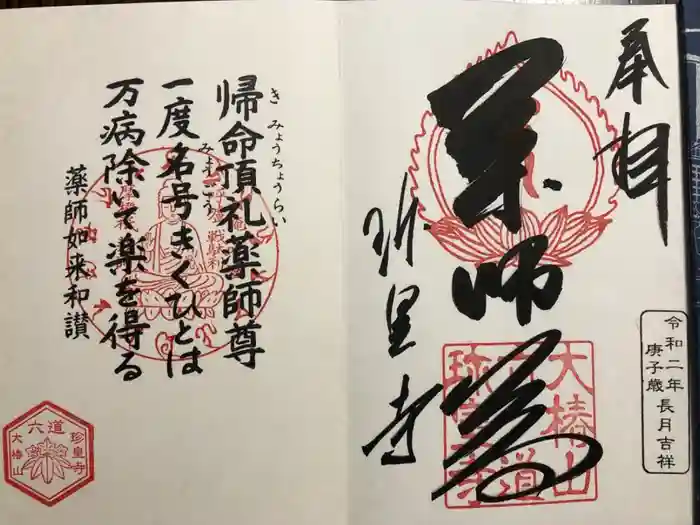 奉拝
薬師尊
珍皇寺
大椿山
六道
珍皇寺
令和二年
庚子歳
長月吉祥
帰命頂礼薬師尊
きみょうちょうらい
一度名号きくひとは
みょうごう
万病除いて楽を得る
薬師如来和讃
六道
珍皇寺
大椿山